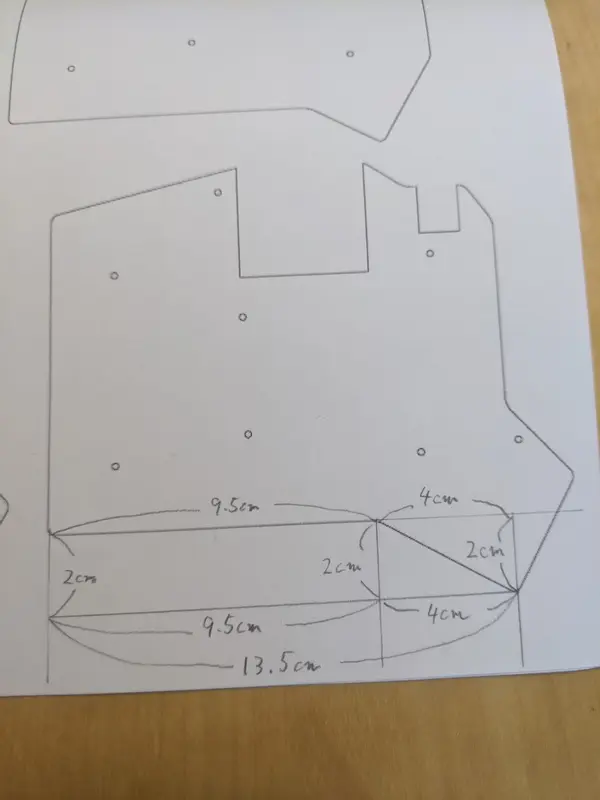 9.5cm
4cm
2cm
2cm
2cm
9.5cm
4cm
13.5cm